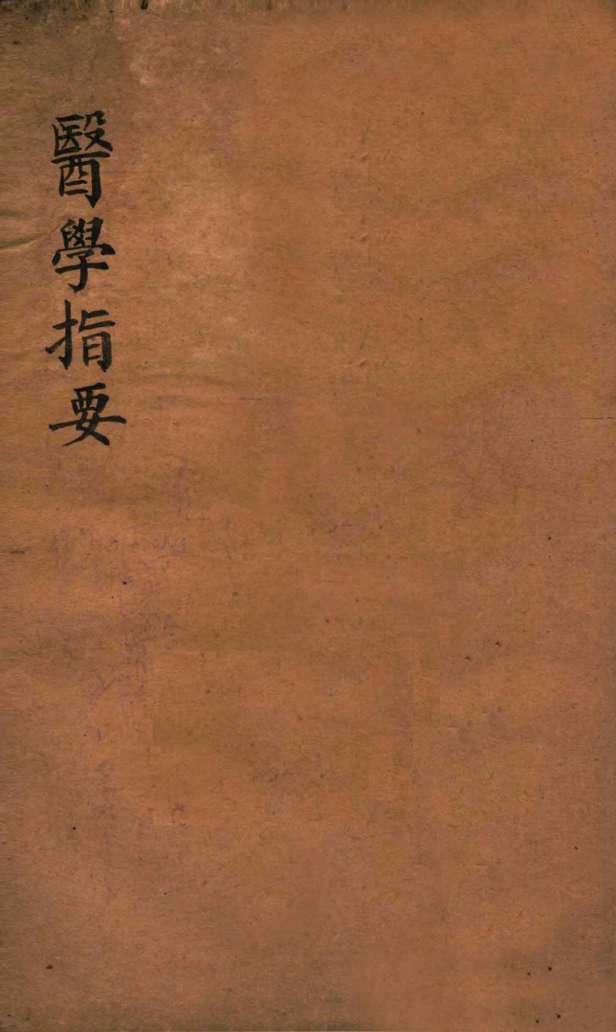 醫學指要